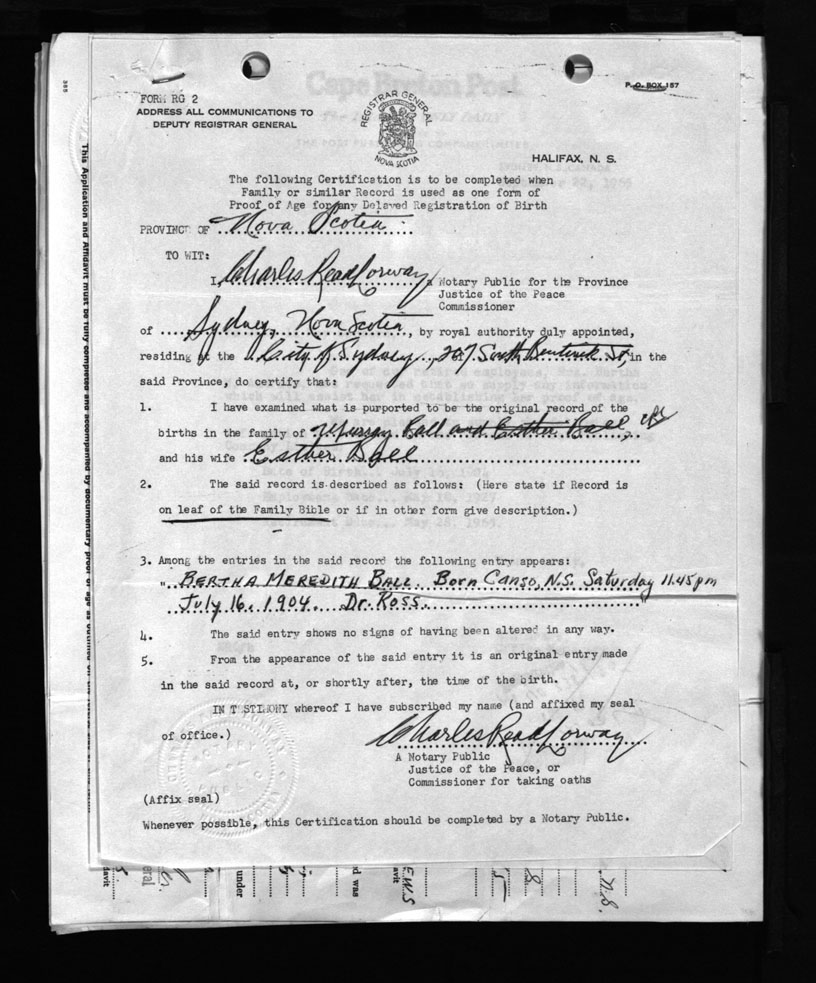 FORM RG 2
ADDRESS ALL COMMUNICATIONS TO
DEPUTY REGISTRAR GENERAL
REGISTRAR GENERAL
NOVA SCOTIA
P. O. BOX 157
HALIFAX, N. S.
The following Certification is to be completed when
Family or similar Record is used as one form of
Proof of Age for any Delayed Registration of Birth
PROVINCE OF Nova Scotia
TO WIT:
I, Charles Read a Notary Public for the Province
Justice of the Peace
Commissioner
of Sydney, Nova Scotia, by royal authority duly appointed,
residing at the City of Sydney, 227 South Bentinck St, in the
said Province, do certify that:
1. I have examined what is purported to be the original record of the
births in the family of Murray Ball and Esther Ball,
and his wife Esther Ball
2. The said record is described as follows: (Here state if Record is
on leaf of the Family Bible or if in other form give description.)
3. Among the entries in the said record the following entry appears:
"BERTHA MEREDITH BALL. Born Canso, N.S. Saturday 11.45 pm
July 16. 1904. Dr. Ross."
4. The said entry shows no signs of having been altered in any way.
5. From the appearance of the said entry it is an original entry made
in the said record at, or shortly after, the time of the birth.
IN TESTIMONY whereof I have subscribed my name (and affixed my seal
of office.)
Charles Read
A Notary Public
Justice of the Peace, or
Commissioner for taking oaths
(Affix seal)
Whenever possible, this Certification should be completed by a Notary Public.
This Application and Affidavit must be fully completed and accompanied by documentary proof of age as outlined on the
Cape Breton Post
under
N.S.